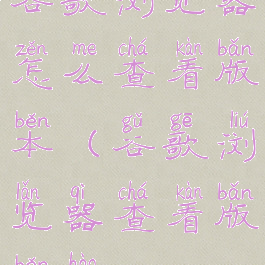 谷歌浏览器
zěn me chá kàn bǎn
怎么查看版
běn gǔ gē liú
本（谷歌浏
lǎn qì chá kàn bǎn
览器查看版
běn hào